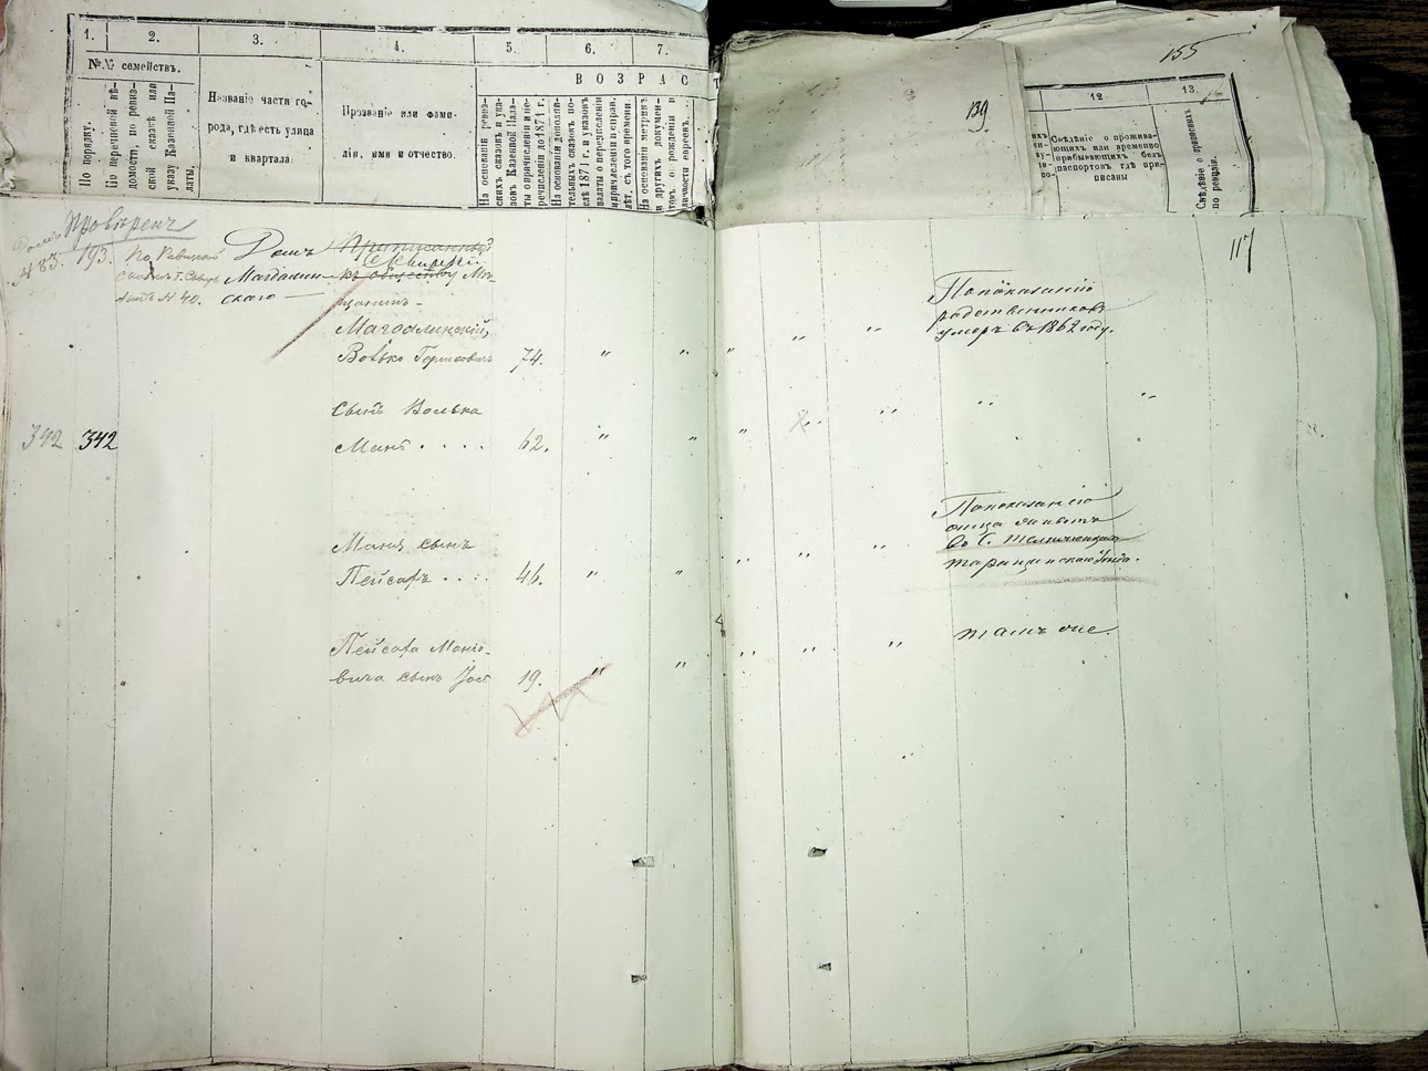 1.
2.
3.
4.
5.
6.
7.
№№ семействъ.
По порядку.
По перечневой вѣ-
домости, по ревиз-
ской сказкѣ или
указу Казенной Па-
латы,
Названіе части го-
рода, гдѣ есть улица
и квартала
Прозваніе или фами-
лія, имя и отчество.
ВОЗРАСТ
На основаніи ревиз-
скихъ сказокъ и ука-
зовъ Казенной Пала-
ты о причисленіи и пе-
речисленіи до 1871 г.
На основаніи дополни-
тельныхъ сказокъ по-
слѣ 1871 г. и указовъ
палаты о перечисленіи
и причисленіи и справ.
лѣт. съ того времени.
На основаніи метрикъ
и другихъ докумен-
товъ о рожденіи и
личности евреевъ.
139
155
12
13.
Свѣдѣніе о прожива-
ющихъ или временно
прибывающихъ безъ
паспортовъ гдѣ при-
писаны
Свѣдѣніе о приписныхъ
по ревизіи.
117
Провѣренъ
483. 193. По Ревизской
№ 40.
Домъ
скаго
Приписанный
къ обществу Мѣ-
щанинъ
Магдалинскій,
Волько Горшковичъ 74. " " "
Попоказанію
родственниковъ
умеръ въ 1862 году.
342 342
сынъ Волька
Маня . . . . 62. " " "
Маня сынъ
Пейсахъ . . . 46. " " "
Попоказанію
отца
во С.
Таращанскаго уѣзда.
Пейсаха Маніо-
вича сынъ Јос 19. " "
тамъ же.